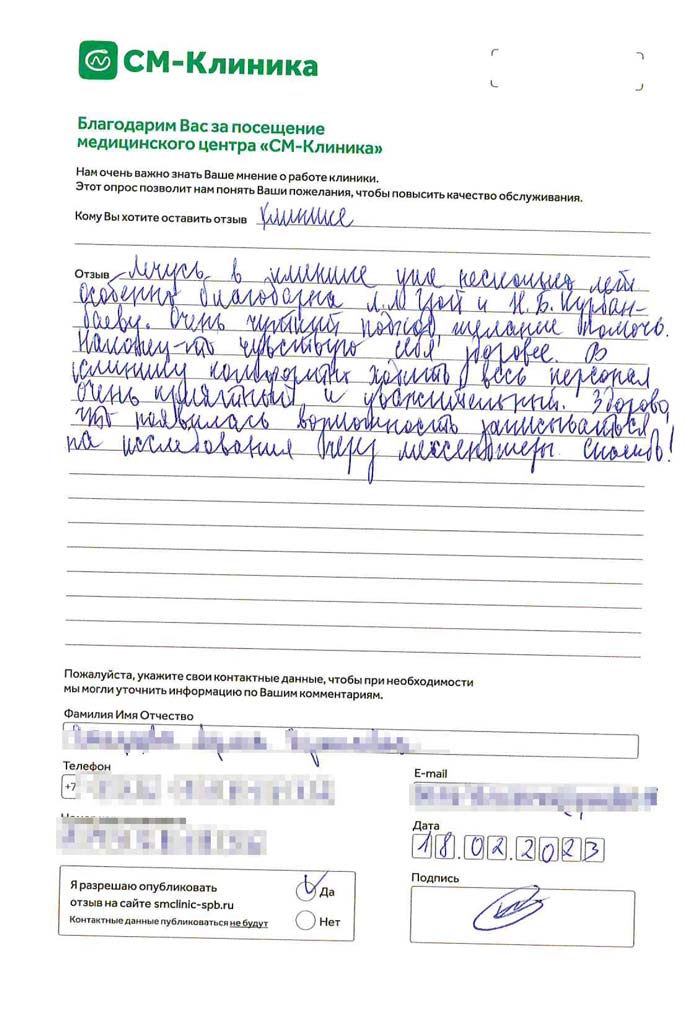 СМ-Клиника
Благодарим Вас за посещение
медицинского центра «СМ-Клиника»
Нам очень важно знать Ваше мнение о работе клиники.
Этот опрос позволит нам понять Ваши пожелания, чтобы повысить качество обслуживания.
Кому Вы хотите оставить отзыв клинике
Отзыв Лечусь в клинике уже несколько лет
особенно благодарна Л.М Цой и Н.Б. Курбан-
баеву. Очень чуткий подход, желание помочь.
Наконец-то чувствую себя здоровее. В
клинику комфортно ходить, весь персонал
очень приятный и уважительный. Здорово,
что появилась возможность записываться
на исследования через мессенджеры. Спасибо!
Пожалуйста, укажите свои контактные данные, чтобы при необходимости
мы могли уточнить информацию по Вашим комментариям.
Фамилия Имя Отчество
Телефон
+7
E-mail
Дата
18.02.2023
Я разрешаю опубликовать
отзыв на сайте smclinic-spb.ru
Контактные данные публиковаться не будут
Да
Нет
Подпись